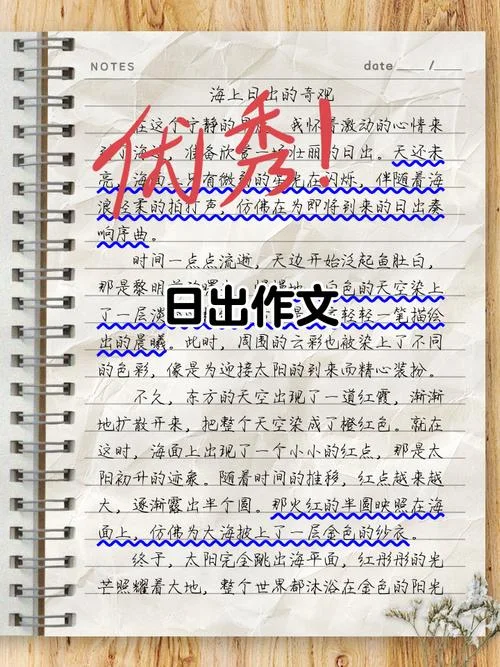 NOTES
date / 
海上日出的奇观
优秀！
在这个宁静的 我怀 激动的心情来
海 ，准备欣赏 壮丽的日出。天还未
亮，海面 只有微 在闪烁，伴随着海
浪轻柔的拍打声，仿佛在为即将到来的日出奏
响序曲。
时间一点点流逝，天边开始泛起鱼肚白，
那是黎明 色的天空染上
了一层淡 轻轻一笔描绘
日出作文
出的晨曦。此时，周围的云彩也被染上了不同
的色彩，像是为迎接太阳的到来而精心装扮。
不久，东方的天空出现了一道红霞，渐渐
地扩散开来，把整个天空染成了橙红色。就在
这时，海面上出现了一个小小的红点，那是太
阳初升的迹象。随着时间的推移，红点越来越
大，逐渐露出半个圆。那火红的半圆映照在海
面上，仿佛为大海披上了一层金色的纱衣。
终于，太阳完全跳出海平面，红彤彤的光
芒照耀着大地，整个世界都沐浴在金色的阳光